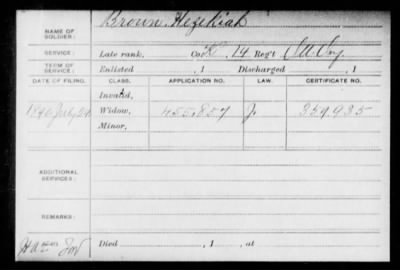 NAME OF SOLDIER: Brown, Hezekiah
SERVICE: Late rank, Co. K, 14 Reg't
TERM OF SERVICE: Enlisted , 1 Discharged , 1
DATE OF FILING. CLASS. APPLICATION NO. LAW. CERTIFICATE NO.
Invalid,
July Widow, 455.857 J. 359.935
Minor,
ADDITIONAL SERVICES:
REMARKS:
Died , 1 , at